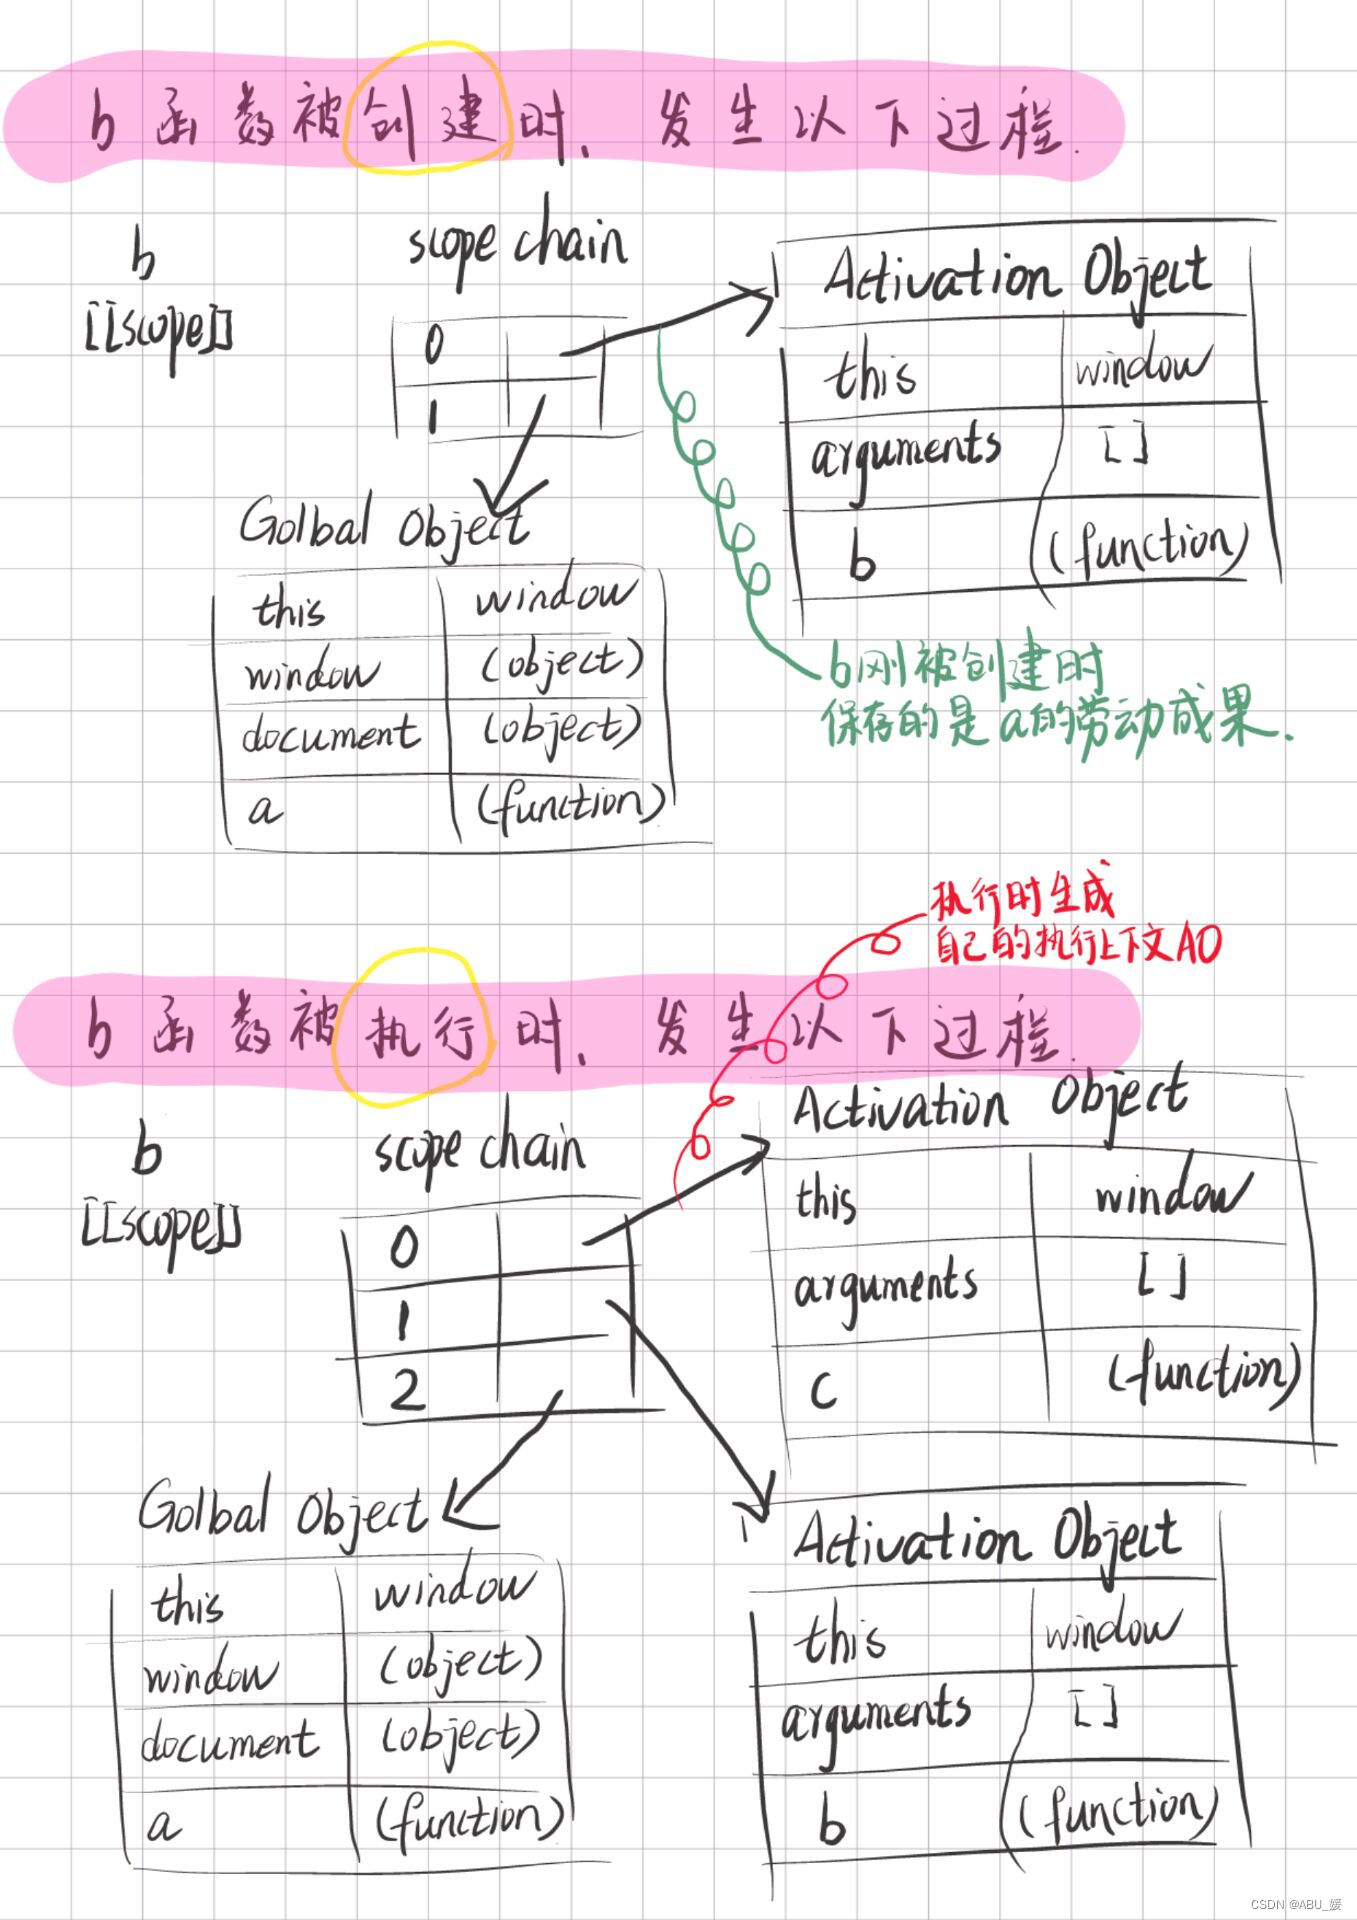 b 函数被创建时、发生以下过程.
b
[[scope]]
scope chain
0
1
Activation Object
this window
arguments []
b (function)
Golbal Object
this window
window (object)
document (object)
a (function)
b刚被创建时
保存的是a的劳动成果.
执行时生成
自己的执行上下文AO
b 函数被执行时、发生以下过程.
b
[[scope]]
scope chain
0
1
2
Activation Object
this window
arguments []
c (function)
Golbal Object
this window
window (object)
document (object)
a (function)
Activation Object
this window
arguments []
b (function)
CSDN @ABU_媛